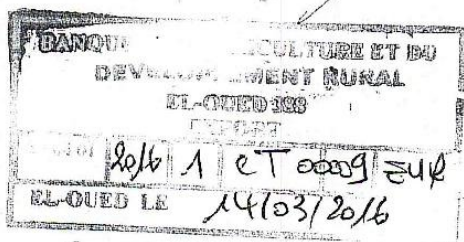 BANQUE ICULTURE ET DU
DEVELOPPEMENT RURAL
EL-OUED 388
EXPORT
2016 1 CT 0009 EUR
EL-OUED LE 14/03/2016